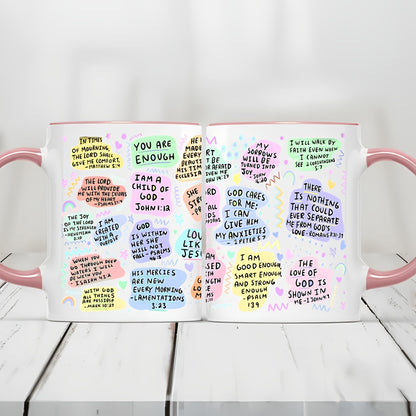 IN TIMES
OF MOURNING,
THE LORD SHALL
GIVE ME COMFORT.
- MATTHEW 5:4
YOU ARE
ENOUGH
HE
MADE
EVERY
BEAUTI
HIS TIM
ECCLESIA
THE LORD
WILL PROVIDE
ME WITH THE DESIRES
OF MY HEART.
- PSALM 37:4
I AM A
CHILD OF
GOD -
JOHN 1:12
SHE
STRO
PR
THE JOY
OF THE LORD
IS MY STRENGTH
- NEHEMIAH
8:10
I AM
CREATED
WITH A
PURPOSE
GOD
IS WITHIN
HER SHE
WILL NOT
FALL - PSALMS
LOV
LIKE
JES
WHEN YOU
GO THROUGH DEEP
WATERS I WILL
BE WITH YOU
- ISAIAH
HIS MERCIES
ARE NEW
EVERY MORNING
- LAMENTATIONS
3:23
WITH GOD
ALL THINGS
ARE POSSIBLE
- MARK 10:27
MY
SORROWS
WILL BE
TURNED INTO
JOY
I WILL WALK BY
FAITH EVEN WHEN
I CANNOT
SEE 2 CORINTHIANS
5:7
GOD CARES
FOR ME;
I CAN
GIVE HIM
MY ANXIETIES
- 1 PETER 5:7
THERE
IS NOTHING
THAT COULD
EVER SEPARATE
ME FROM GOD'S
LOVE - ROMANS 8:38-39
I AM
GOOD ENOUGH
SMART ENOUGH
AND STRONG
ENOUGH
- PSALM
139
THE
LOVE OF
GOD IS
SHOWN IN
ME - 1 JOHN 4:9